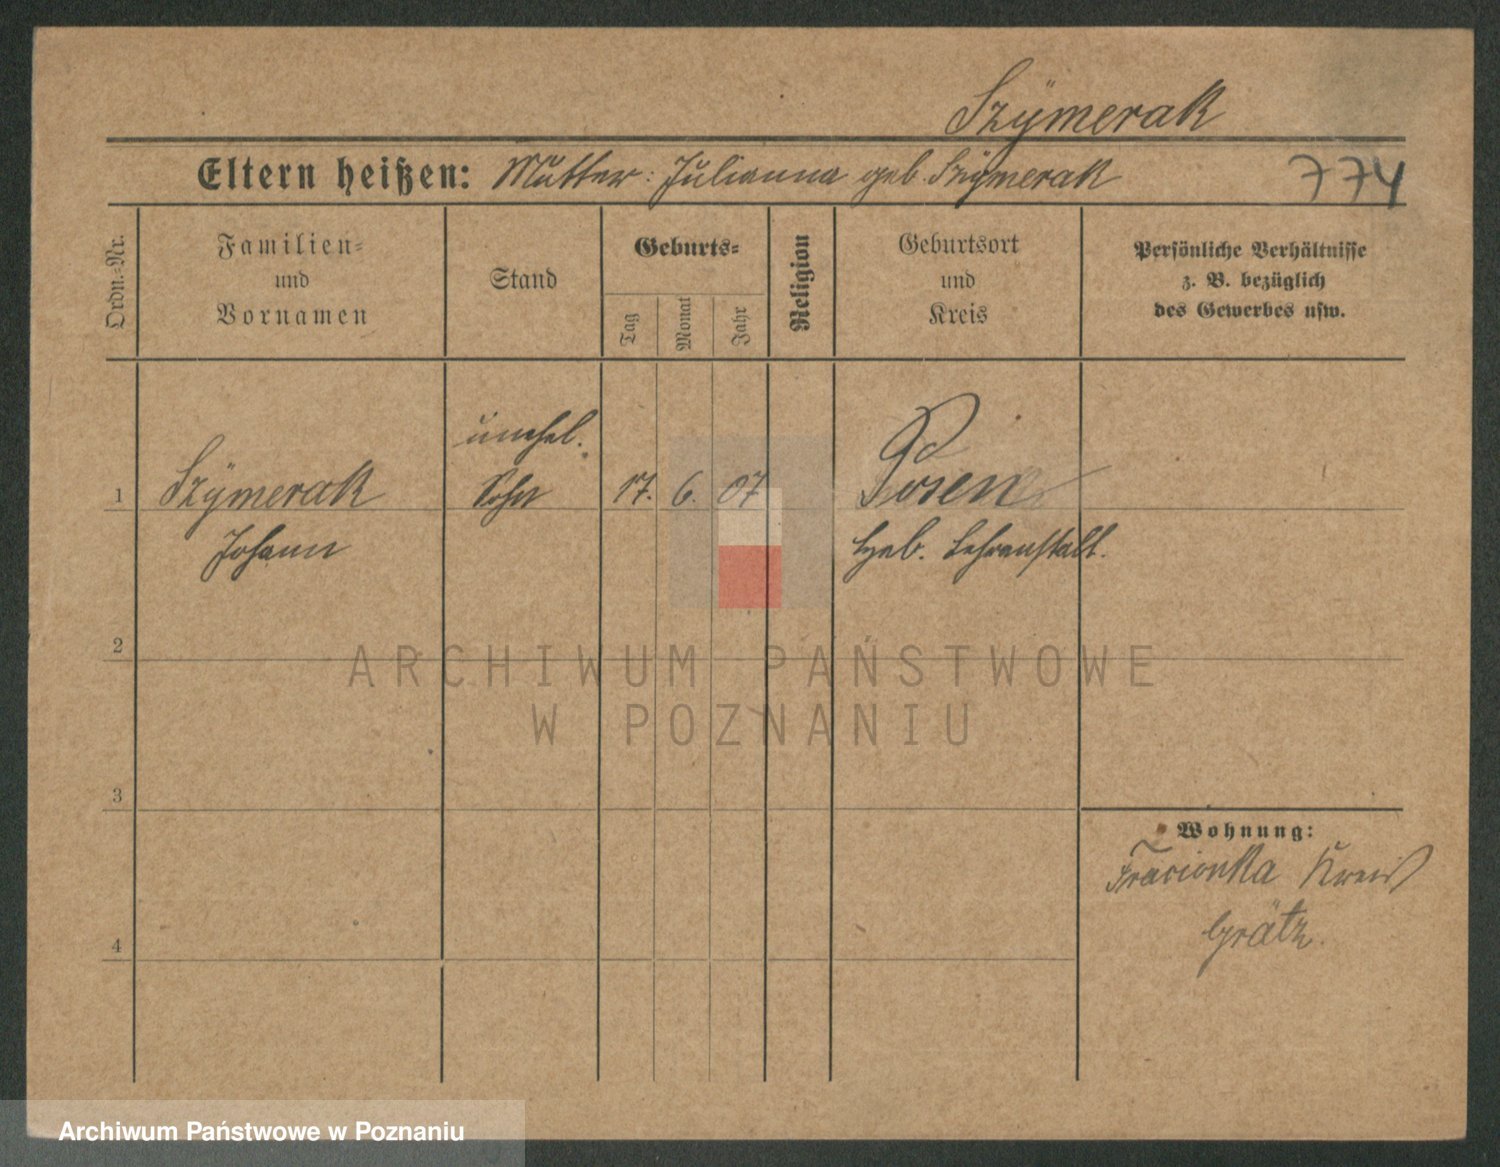 Szÿmerak
Eltern heißen: Mutter: Julianna geb. Szÿmerak 774
Ordn.=Nr.
Familien=
und
Vornamen
Stand
Geburts=
Tag
Monat
Jahr
Religion
Geburtsort
und
Kreis
Persönliche Verhältnisse
z. B. bezüglich
des Gewerbes usw.
unehel.
1 Szÿmerak Sohn 17. 6. 07 Posen
Johann Heb. Lehranstalt.
2
ARCHIWUM PAŃSTWOWE
W POZNANIU
3
Wohnung:
Kreis
Grätz.
4
Archiwum Państwowe w Poznaniu